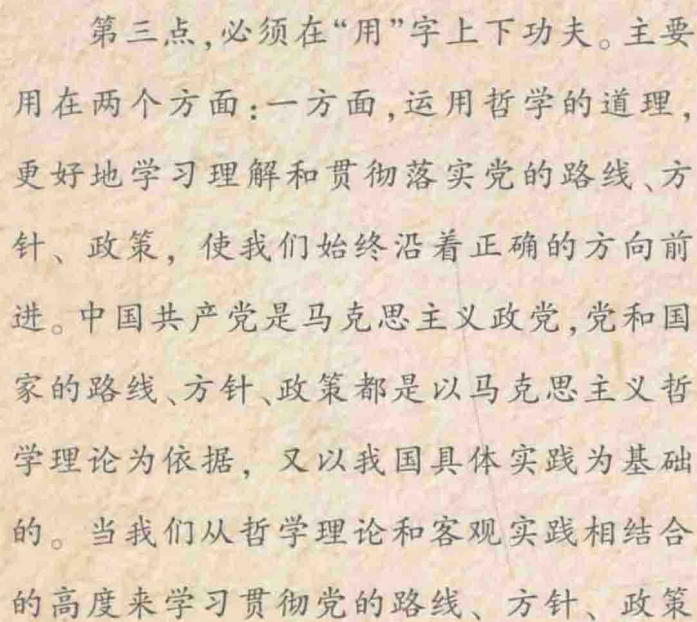 第三点,必须在“用”字上下功夫。主要
用在两个方面:一方面,运用哲学的道理,
更好地学习理解和贯彻落实党的路线、方
针、政策，使我们始终沿着正确的方向前
进。中国共产党是马克思主义政党,党和国
家的路线、方针、政策都是以马克思主义哲
学理论为依据，又以我国具体实践为基础
的。当我们从哲学理论和客观实践相结合
的高度来学习贯彻党的路线、方针、政策